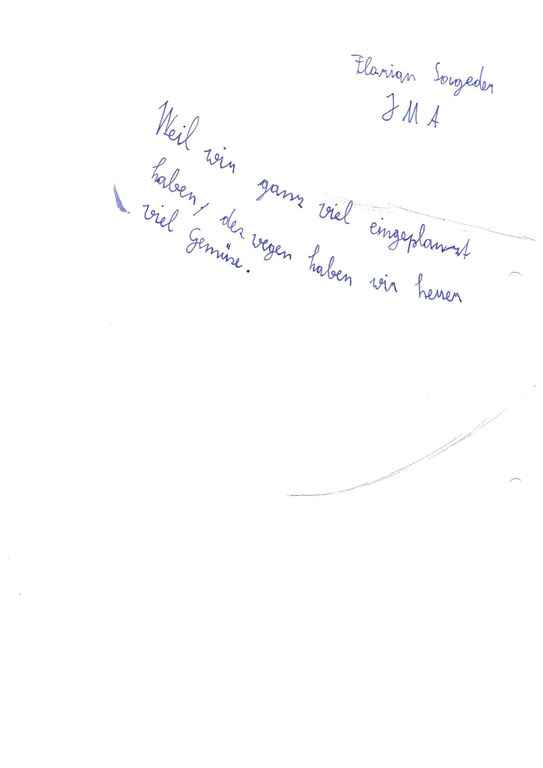 Florian Sougeder
JMA
Weil wir ganz viel eingeplanzt
haben, des wegen haben wir heuer
viel Gemüse.